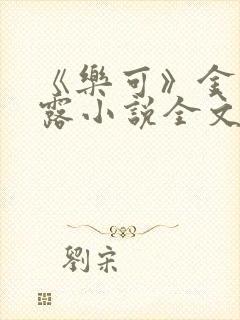 《樂可》金
露小說全文
劉宋